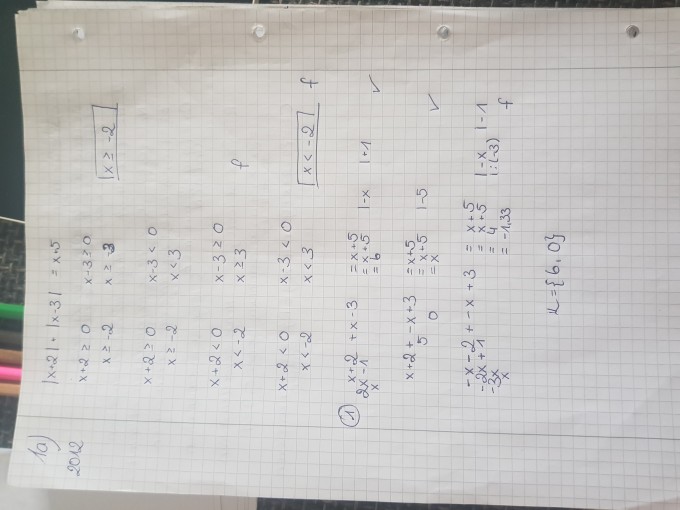 1a)
2012
|x+2| + |x-3| = x+5
x+2 ≥ 0 x-3 ≥ 0
x ≥ -2 x ≥ 3 |x ≥ -2|
x+2 ≥ 0 x-3 < 0
x ≥ -2 x < 3
x+2 < 0 x-3 ≥ 0
x < -2 x ≥ 3 f
x+2 < 0 x-3 < 0
x < -2 x < 3 |x < -2| f
① x+2 +x-3 = x+5
2x -1 = x+5 |-x |+1
x = 6 ✓
x+2 + -x+3 = x+5
5 = x+5 |-5
0 = x ✓
-x-2 + -x+3 = x+5
-2x+1 = x+5 |-x |-1
-3x = 4 |:(-3)
x = -1,33 f
L={6, 0}